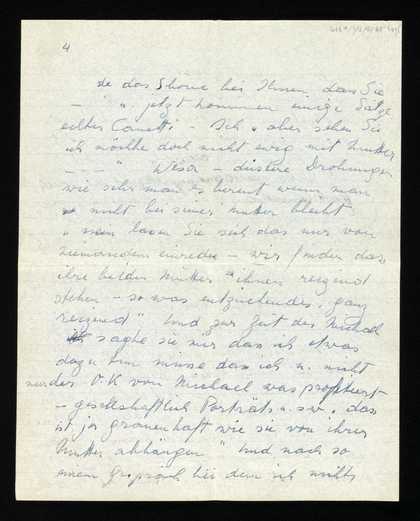 4
de das Schöne bei Ihnen, dass Sie
– " . jetzt kommen einige Sätze
echter Canetti – Ich " aber sehen Sie
ich möchte doch nicht ewig mit Mutter
– – – " Weser – düstere Drohungen
wie sehr man es bereut wenn man
nicht bei seiner Mutter bleibt
" nein lassen Sie sich das nur von
niemandem einreden – wir finden das
ihre beiden Mütter " ihnen reizend
stehen – so was entzückendes, ganz
reizend" Und zur Zeit des Michael
sagte sie mir das ich etwas
dazu tun müsse das ich u. nicht
nur der O.K von Michael was profitiert
– gesellschaftlich Porträts u.s.w. , das
ist ja grauenhaft wie sie von ihrer
Mutter abhängen " Und nach so
einem Gespräch bei dem ich nichts